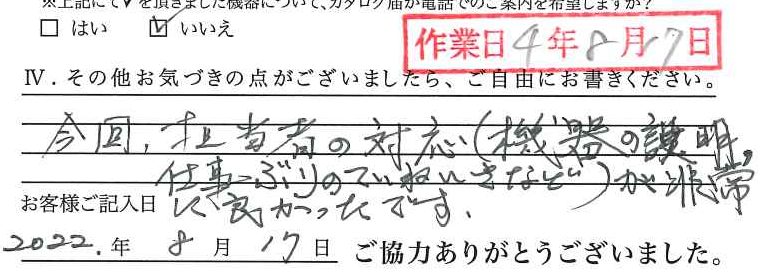 ※上記にて✓を頂きました機器について、カタログ届か電話でのご案内を希望しますか?
□ はい ☑ いいえ
作業日 4年8月17日
Ⅳ．その他お気づきの点がございましたら、ご自由にお書きください。
今回、担当者の対応(機器の説明、
仕事ぶりのていねいさなど)が非常
に良かったです。
お客様ご記入日
2022.年 8月 17日 ご協力ありがとうございました。